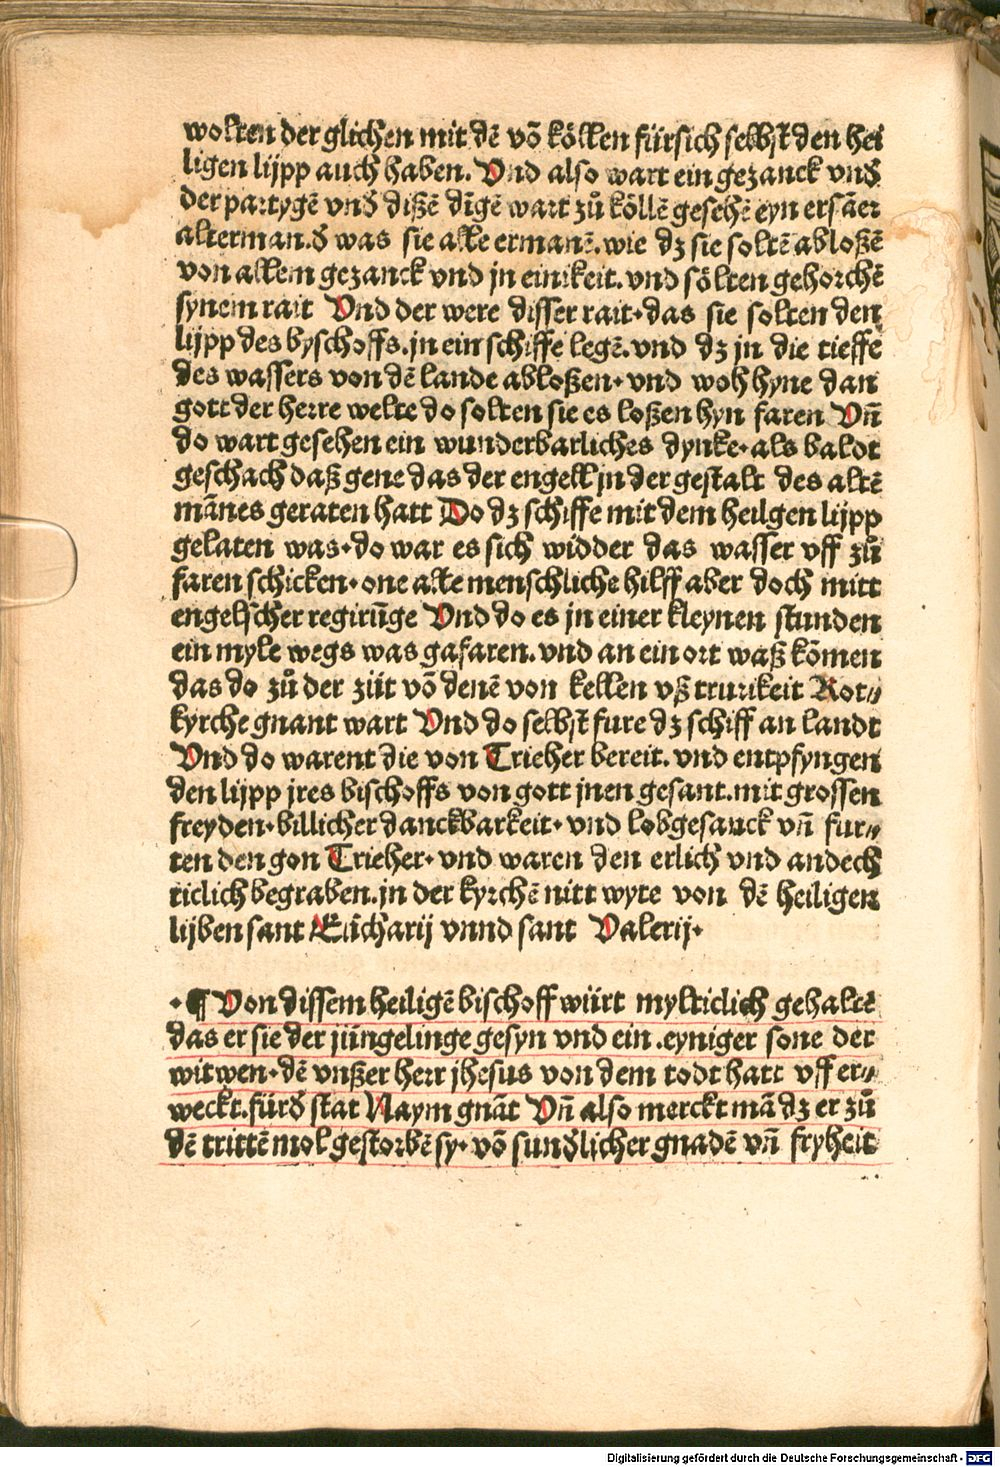 wolten der glichen mit dē vō köllen fürsich selbst den hei
ligen lijpp auch haben. Vnd also wart ein gezanck vnd̕
der partygē vnd̕ dißē dīgē wart zů köllē gesehē eyn ersāer
alterman. d̕ was sie alle ermanē. wie dz sie soltē abloßē
von allem gezanck vnd jn einikeit. vnd sölten gehorchē
synem rait Vnd der were disser rait. das sie solten den
lijpp des byschoffs. jn ein schiffe legē. vnd dz jn die tieffe
des wassers von dē lande abloßen. vnd woh hyne dan
gott der herre welte do solten sie es loßen hyn faren Vn̄
do wart gesehen ein wunderbarliches dynke. als baldt
geschach daß gene das der engell jn der gestalt des altē
mānes geraten hatt Do dz schiffe mit dem heilgen lijpp
gelaten was. do war es sich widder das wasser vff zů
faren schicken. one alle menschliche hilff aber doch mitt
engelscher regirūge Vnd do es jn einer kleynen stunden
ein myle wegs was gafaren. vnd an ein ort waß kōmen
das do zů der züt vō denē von kellen vß trurikeit Rot⸗
kyrche gnant wart Vnd do selbst fure dz schiff an landt
Vnd do warent die von Trieher bereit. vnd entpfyngen
den lijpp jres bischoffs von gott jnen gesant. mit grossen
freyden. billicher danckbarkeit. vnd lobgesanck vn̄ fur⸗
ten den gon Trieher. vnd waren den erlich vnd andech
ticlich begraben. jn der kyrchē nitt wyte von dē heiligen
lijben sant Eücharij vnnd sant Valerij.
. ¶ Von dissem heiligē bischoff würt mylticlich gehaltē
das er sie der jüngelinge gesyn vnd ein .eyniger sone der
witwen. dē vnßer herr jhesus von dem todt hatt vff er⸗
weckt. fürd̕ stat Naym gnāt Vn̄ also merckt mā dz er zů
dē trittē mol gestorbē sy. vō sund̕licher gnadē vn̄ fryheit
Digitalisierung gefördert durch die Deutsche Forschungsgemeinschaft - DFG